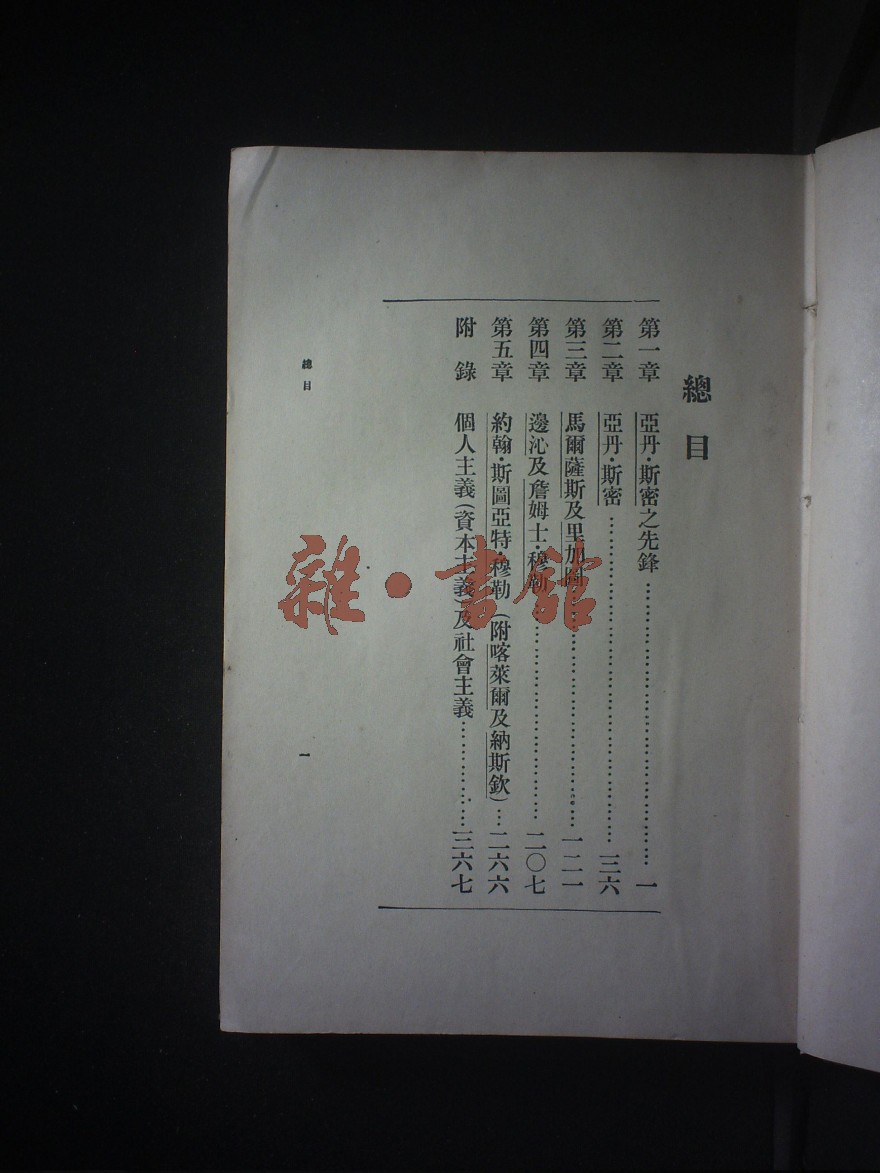 總目
第一章 亞丹·斯密之先鋒……………………………一
第二章 亞丹·斯密……………………………三六
第三章 馬爾薩斯及里加圖……………………………一二一
第四章 邊沁及詹姆士·穆勒……………………………二〇七
第五章 約翰·斯圖亞特·穆勒（附喀萊爾及納斯欽）…二六六
附錄 個人主義（資本主義）及社會主義……………三六七
總目
一
雜·書館